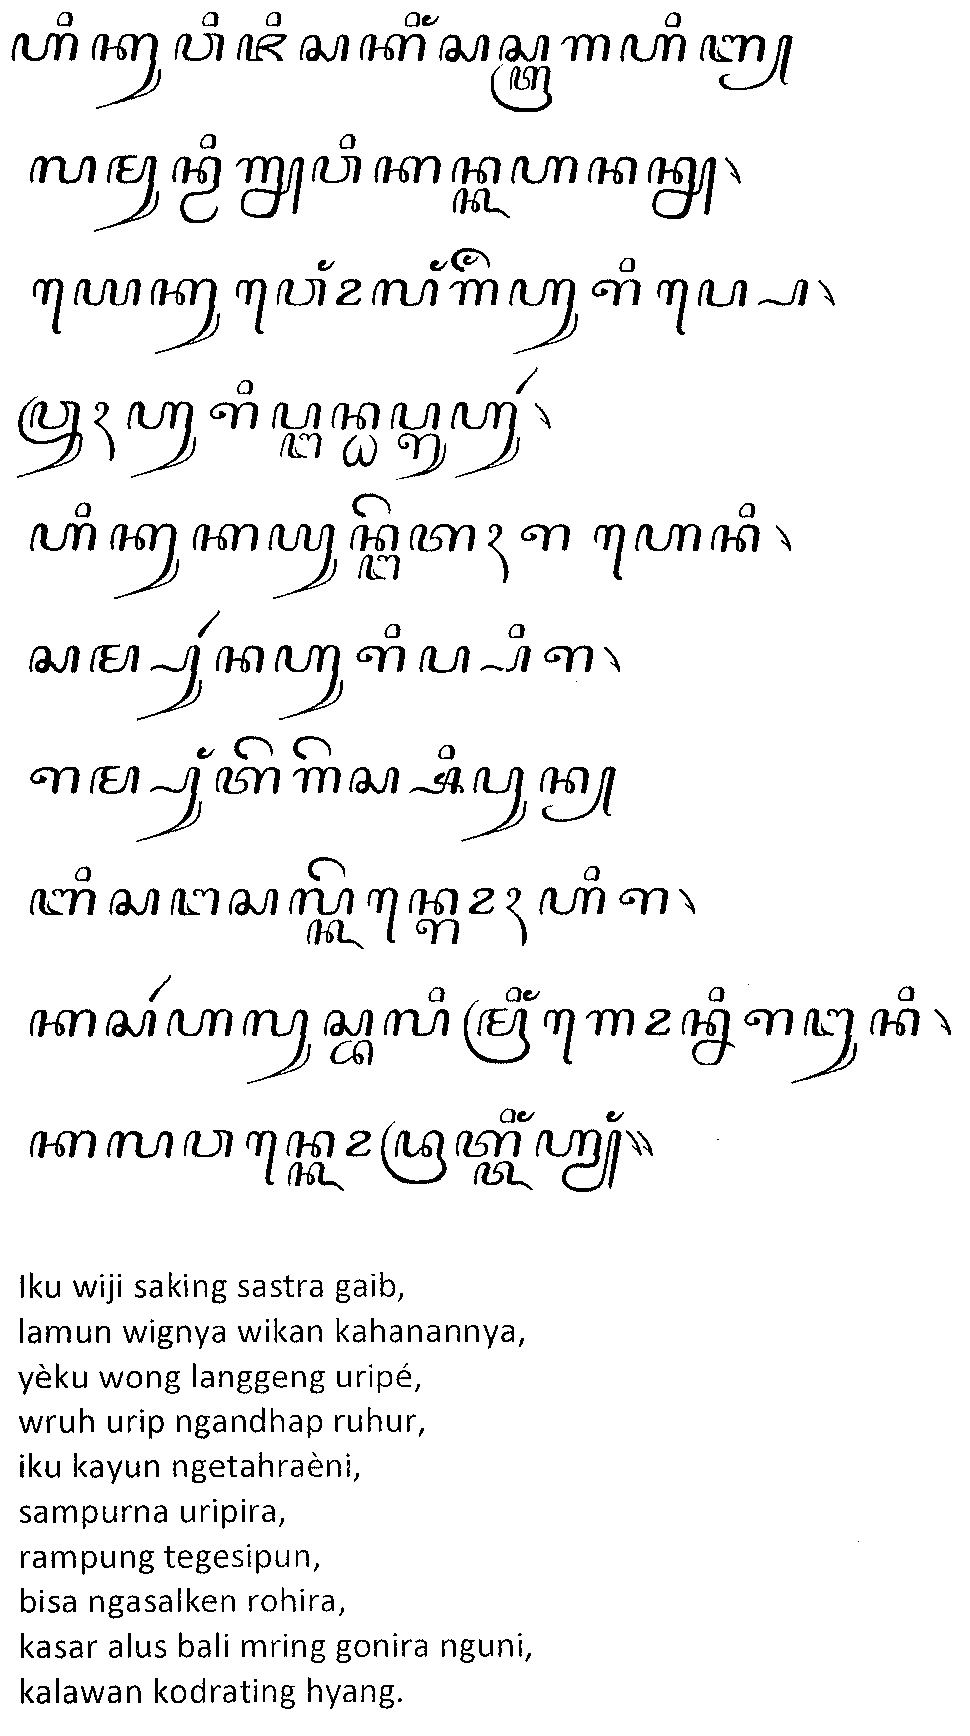 ꦲꦶꦏꦸꦮꦶꦗꦶꦱꦏꦶꦁꦱꦱ꧀ꦠꦿꦒꦲꦶꦧ꧀
ꦭꦩꦸꦤ꧀ꦮꦶꦒꦾꦮꦶꦏꦤ꧀ꦏꦲꦤꦤꦾ꧈
ꦪꦺꦏꦸꦮꦺꦴꦁꦭꦁꦒꦼꦁꦲꦸꦫꦶꦥ꧀ꦥꦺ꧈
ꦮꦿꦸꦃꦲꦸꦫꦶꦥ꧀ꦔꦤ꧀ꦝꦥ꧀ꦫꦸꦲꦸꦂ꧈
ꦲꦶꦏꦸꦏꦪꦸꦤ꧀ꦔꦼꦠꦃꦫꦲꦺꦤꦶ꧈
ꦱꦩ꧀ꦥꦸꦂꦤꦲꦸꦫꦶꦥ꧀ꦥꦶꦫ꧈
ꦫꦩ꧀ꦥꦸꦁꦠꦼꦒꦼꦱ꧀ꦱꦶꦥꦸꦤ꧀
ꦧꦶꦱꦔꦱꦭ꧀ꦏꦼꦤ꧀ꦫꦺꦴꦃꦲꦶꦫ꧈
ꦏꦱꦂꦲꦭꦸꦱ꧀ꦧꦭꦶꦩꦿꦶꦁꦒꦺꦴꦤ꧀ꦤꦶꦫꦔꦸꦤꦶ꧈
ꦏꦭꦮꦤ꧀ꦏꦺꦴꦢꦿꦠ꧀ꦠꦶꦁꦲꦾꦁ꧉
Iku wiji saking sastra gaib,
lamun wignya wikan kahanannya,
yèku wong langgeng uripé,
wruh urip ngandhap ruhur,
iku kayun ngetahraèni,
sampurna uripira,
rampung tegesipun,
bisa ngasalken rohira,
kasar alus bali mring gonira nguni,
kalawan kodrating hyang.